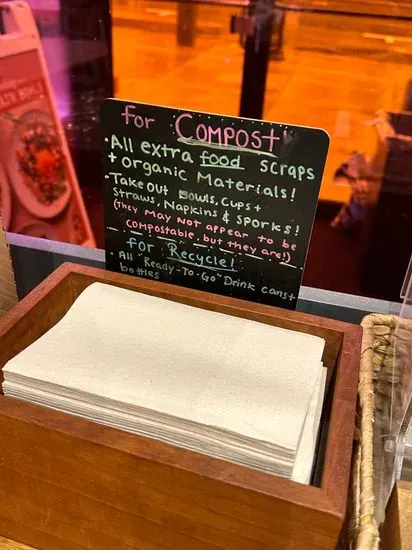 for COMPOST!
• All extra food scraps
+ organic Materials!
• Take out Bowls, Cups +
Straws, Napkins & Sporks!
(They may not appear to be
compostable, but they are!)
for Recycle!
• All "Ready-To-Go" Drink cans +
bottles